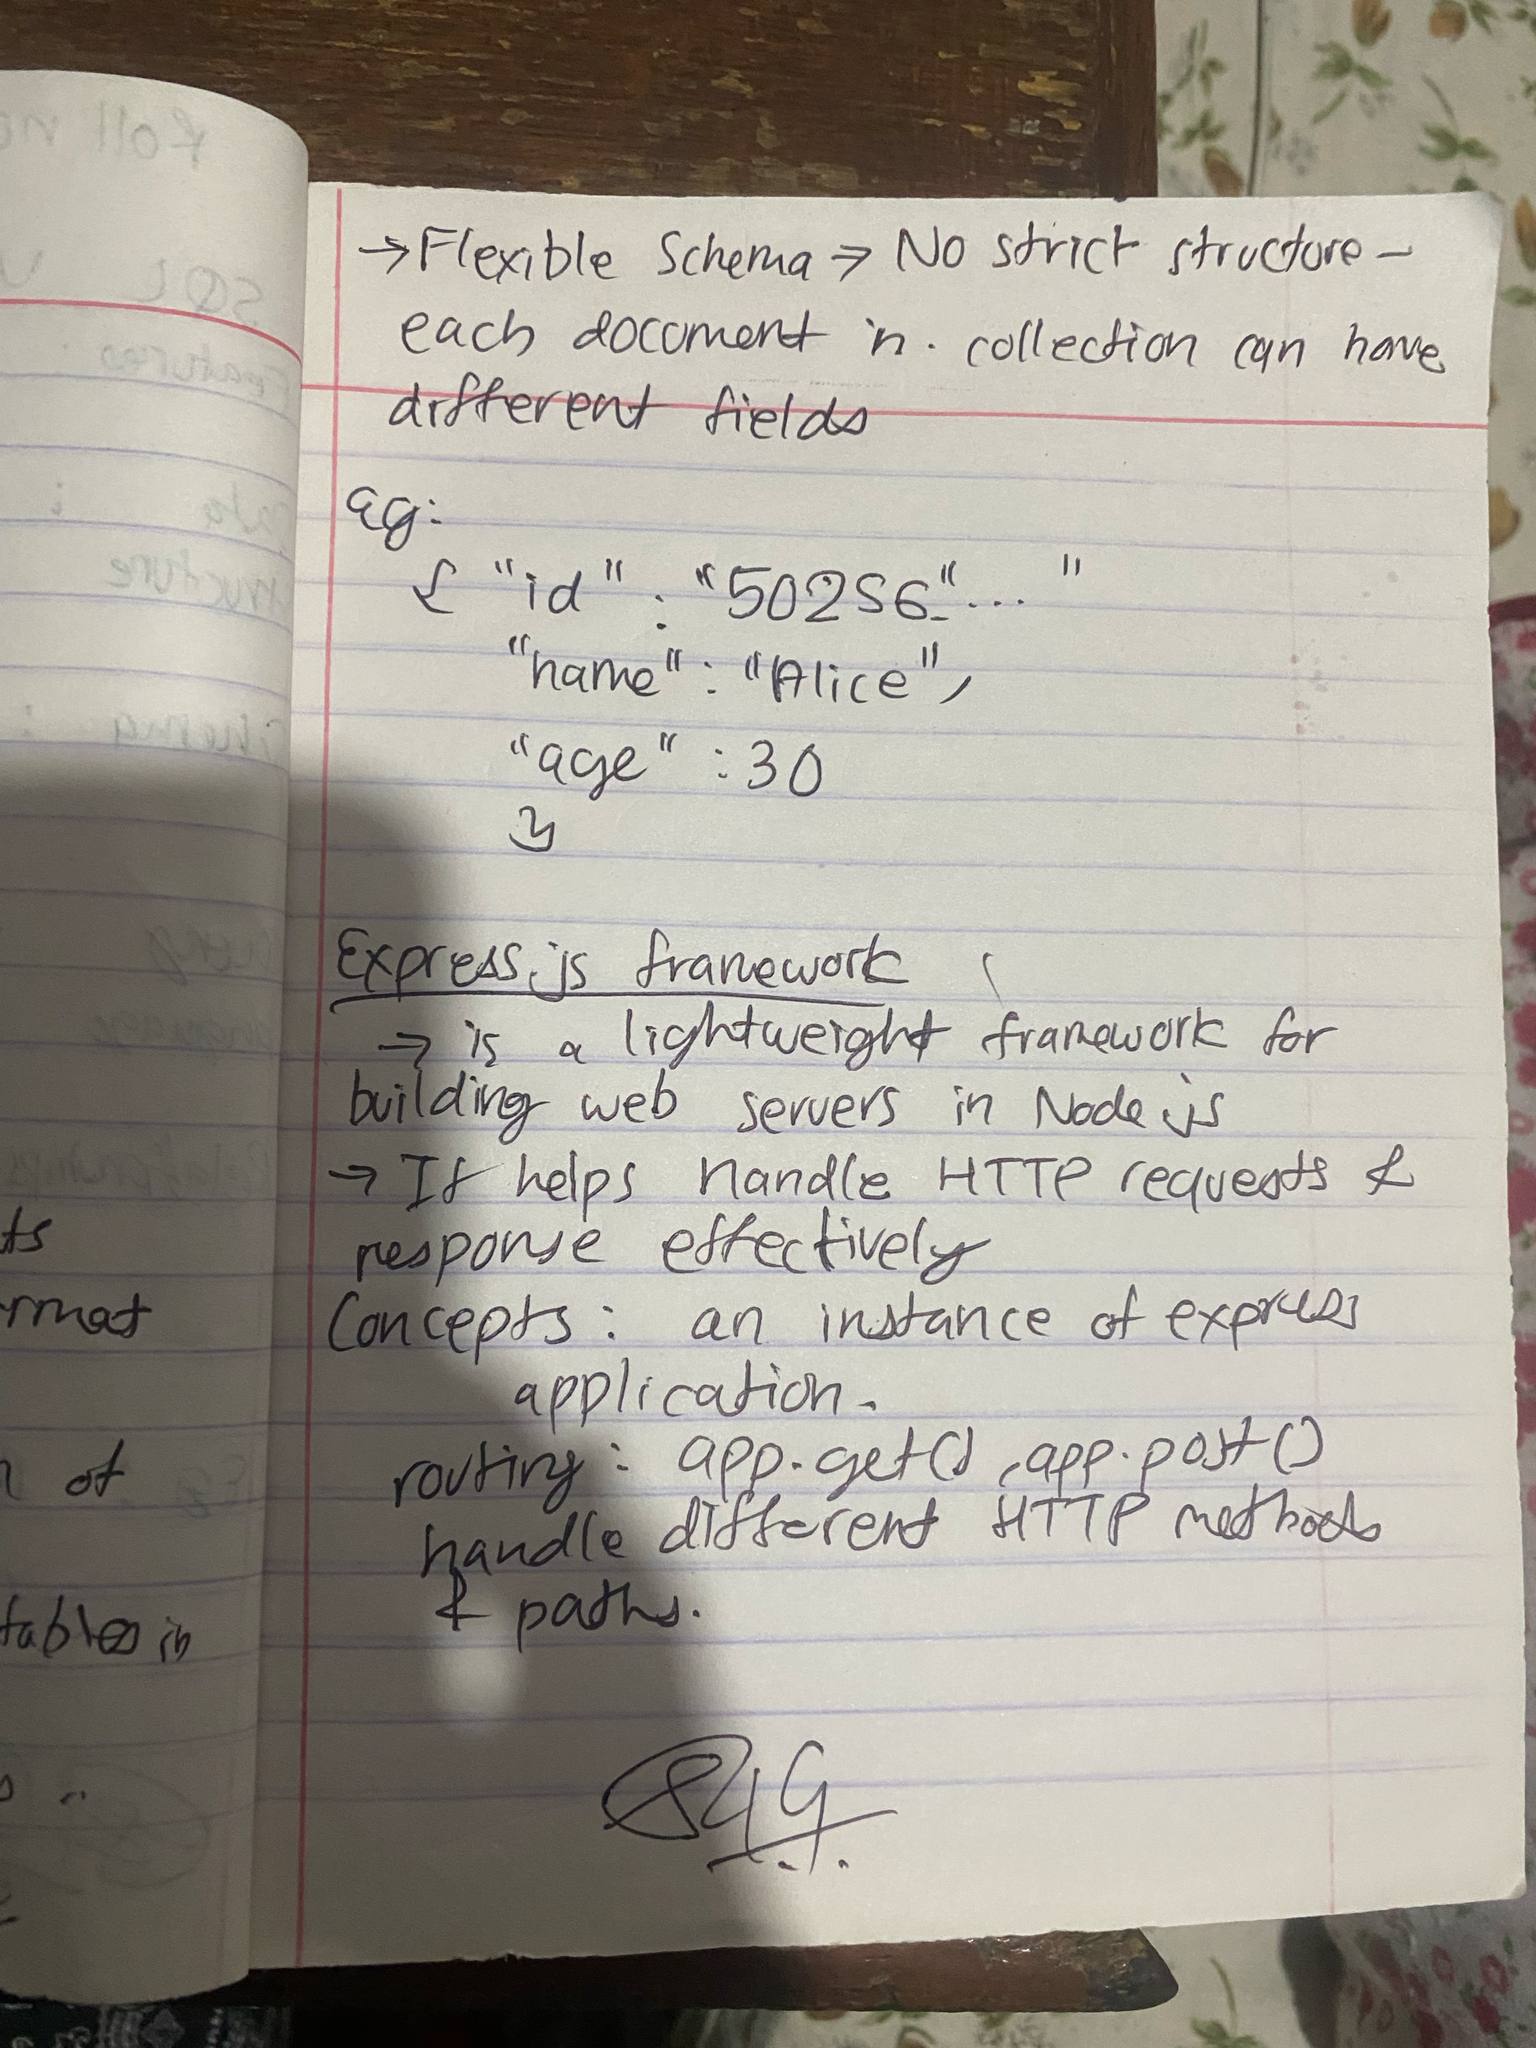 → Flexible Schema → No strict structure -
each document in. collection can have
different fields
eg:
{ "id" : "50256"... "
"name" : "Alice",
"age" : 30
}
Express.js framework
→ is a lightweight framework for
building web servers in Node.js
→ It helps handle HTTP requests &
response effectively
Concepts : an instance of express
application.
routing : app.get(), app.post()
handle different HTTP methods
& paths.
ts
rmat
of
tables in